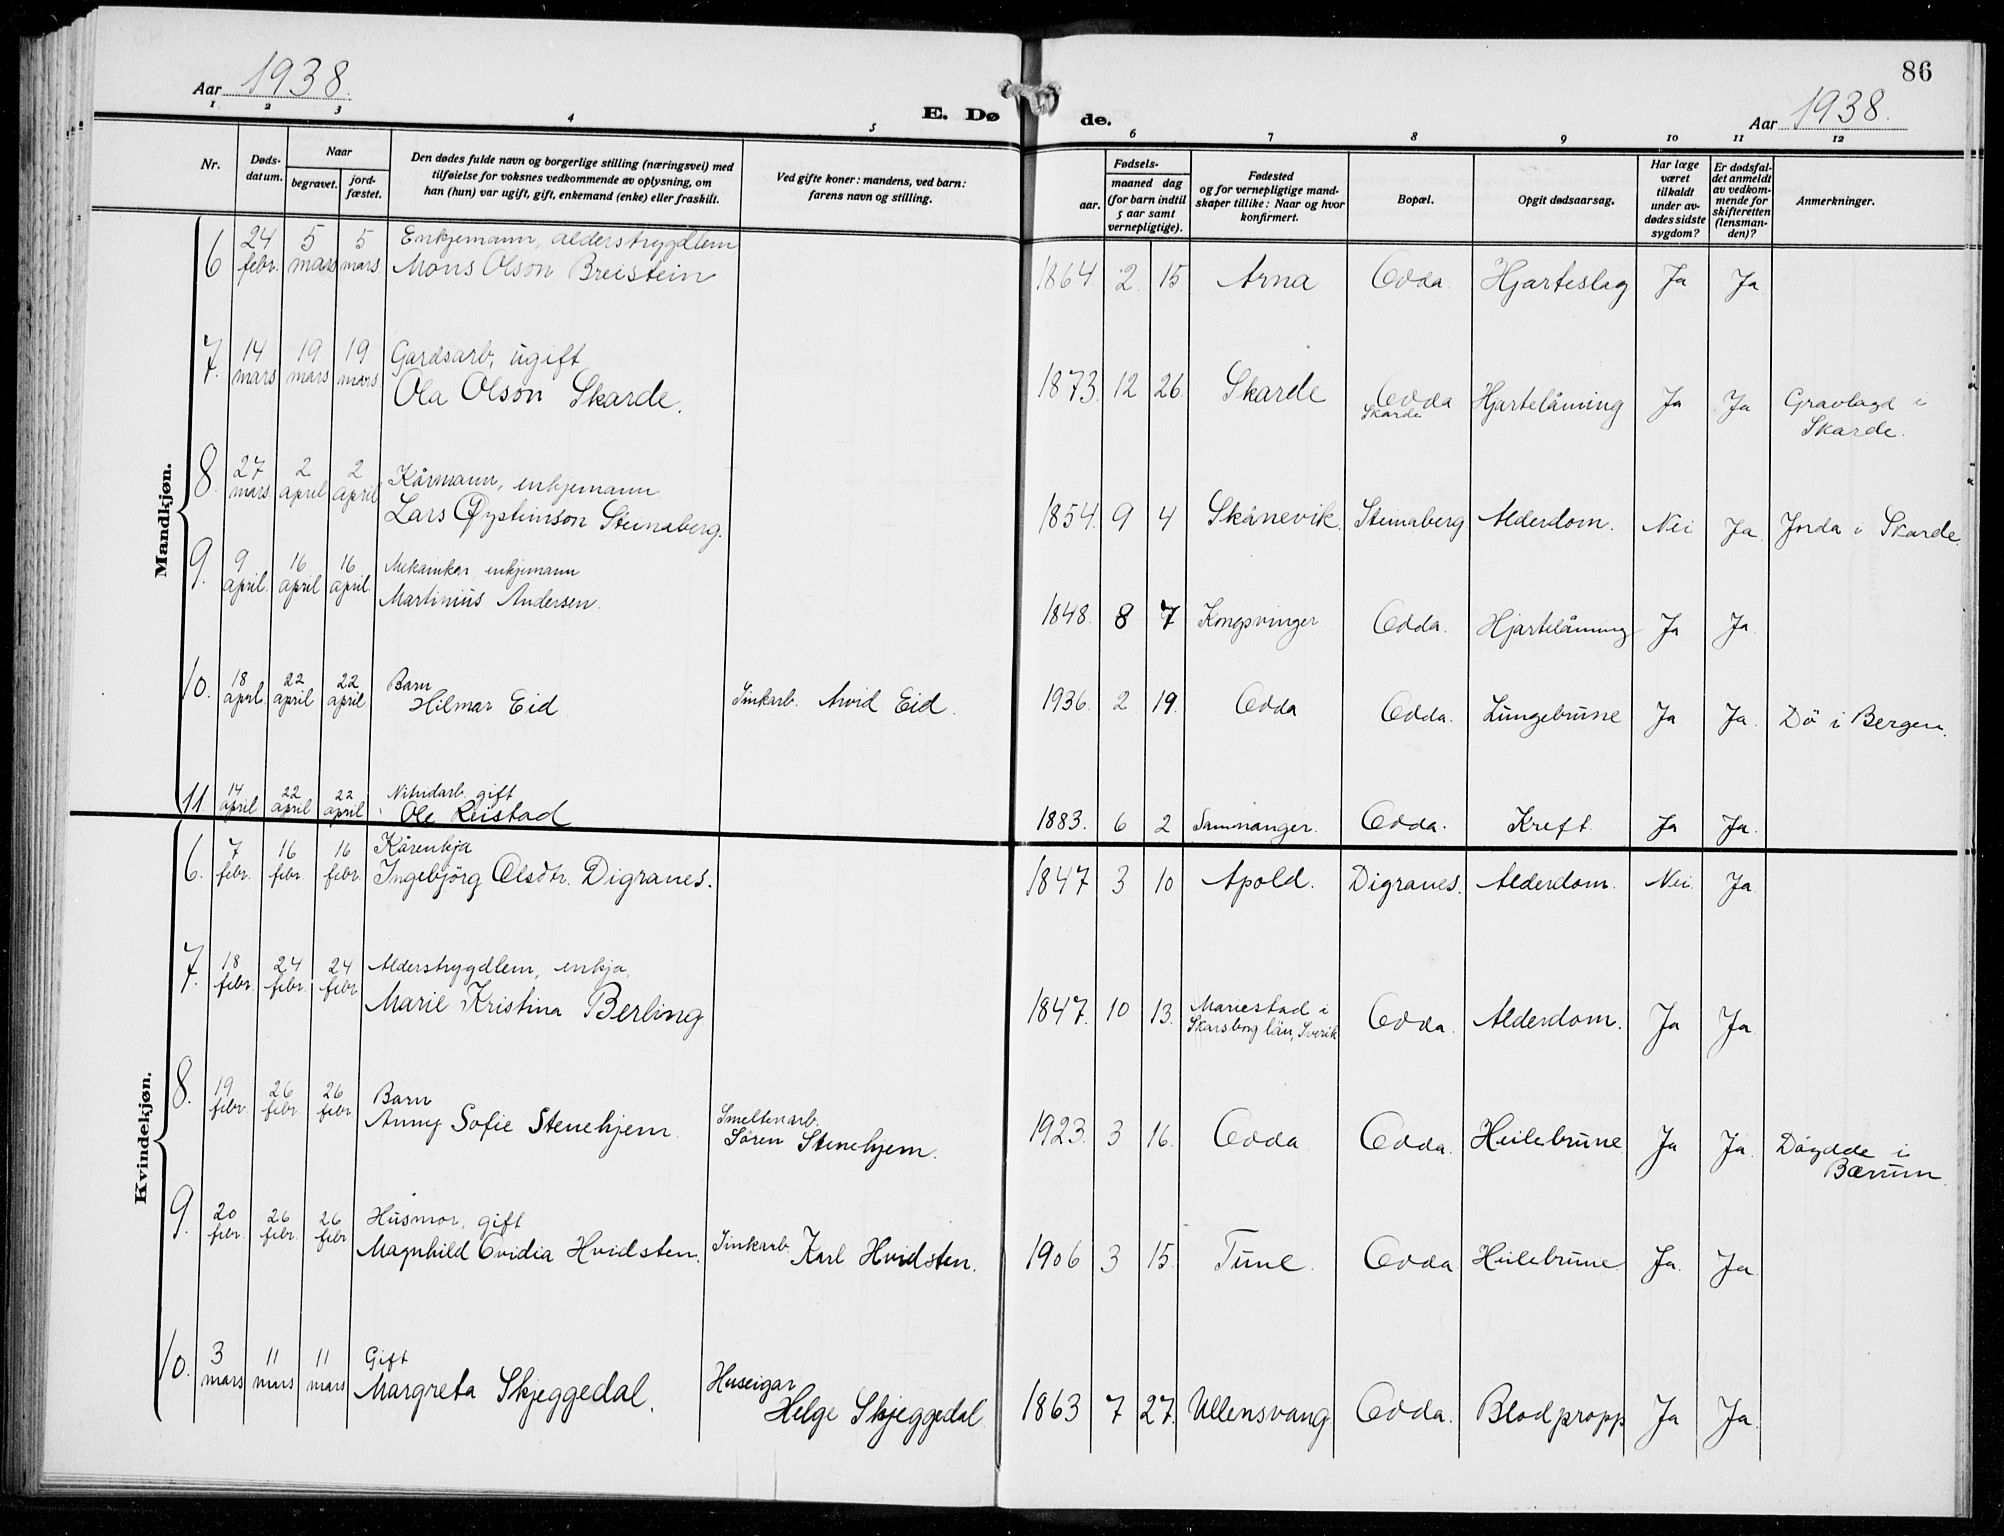 86
Aar 1938.
E. Dø de.
Aar 1938.
1 2 3 4 5 6 7 8 9 10 11 12
Nr.
Døds-
datum.
Naar
begravet.
jord-
fæstet.
Den dødes fulde navn og borgerlige stilling (næringsvei) med
tilføielse for voksnes vedkommende av oplysning, om
han (hun) var ugift, gift, enkemand (enke) eller fraskilt.
Ved gifte koner: mandens, ved barn:
farens navn og stilling.
Fødsels-
aar.
maaned dag
(for barn indtil
5 aar samt
vernepligtige).
Fødested
og for vernepligtige mand-
skaper tillike: Naar og hvor
konfirmert.
Bopæl.
Opgit dødsaarsag.
Har læge
været
tilkaldt
under av-
dødes sidste
sygdom?
Er dødsfal-
det anmeldt
av vedkom-
mende for
skifteretten
(lensman-
den)?
Anmerkninger.
Mandkjøn.
6 24 febr. 5 mars 5 mars. Enkjemann, alderstrygdlem
Mons Olson Breistein
1864. 2. 15 Arna Odda. Hjarteslag Ja Ja
7. 14 mars 19 mars 19 mars. Gardsarb, ugift
Ola Olson Skarde.
1873. 12 26. Skarde Odda Skarde Hjartelåming Ja Ja Gravlagd i
Skarde.
8. 27 mars 2 april 2 april Kårmann, enkjemann
Lars Øysteinson Steinaberg.
1854. 9 4 Skånevik. Steinaberg Alderdom. Nei Ja Jorda i Skarde.
9. 9 april. 16 april 16 april. Mekanikar, enkjemann
Martinius Andersen.
1848. 8 7 Kongsvinger Odda. Hjartelåming Ja Ja
10. 18 april 22 april 22 april Barn
Hilmar Eid
Sinkarb. Arvid Eid.
1936. 2. 19. Odda Odda. Lungebrune Ja Ja. Dö i Bergen.
11. 14 april 22 april 22 april Nitridarb. gift
Ole Reistad
1883. 6 2 Samnanger. Odda. Kreft. Ja Ja.
Kvindekjøn.
6. 7 febr. 16 febr. 16 febr. Kårenkja
Ingebjörg Olsdtr. Digranes.
1847 3 10 Apold. Digranes. Alderdom. Nei. Ja.
7. 18 febr. 24 febr. 24 febr Alderstrygdlem, enkja,
Marie Kristina Berling
1847. 10 13. Mariestad i
Skarsborg län, Sverik Odda. Alderdom. Ja Ja.
8. 19 febr. 26 febr. 26 febr Barn
Anny Sofie Stenehjem.
Smeltenarb.
Sören Stenehjem.
1923. 3 16. Odda Odda. Heilebrune Ja Ja. Döydde i
Bærum.
9. 20 febr. 26 febr. 26 febr Husmor, gift
Magnhild Ovidia Hvidsten.
Sinkarb. Karl Hvidsten.
1906 3 15. Tune. Odda Heilebrune. Ja. Ja
10. 3 mars 11 mars 11 mars Gift
Margreta Skjeggedal.
Huseigar
Helge Skjeggedal.
1863 7 27. Ullensvang Odda. Blodpropp Ja Ja.